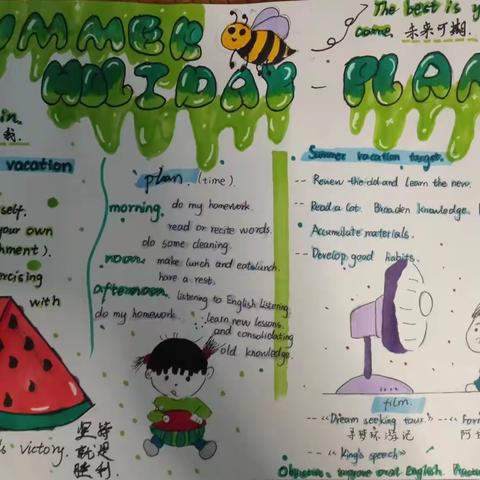 UMMER
HOLIDAY - PLAN
The best is y
come. 未来可期.
in.
我.
vacation
self.
your own
hment).
ercising
with
s victory.
坚持
就是
胜利.
plan. (time).
morning. do my homework.
read or recite words.
do some cleaning.
noon. make lunch and eat lunch.
have a rest.
afternoon. listening to English listening.
do my homework.
learn new lessons.
and consolidating
old knowledge.
Summer vacation target.
-- Renew the old and learn the new.
-- Read a lot. Broaden knowledge.
-- Accumulate materials.
-- Develop good habits.
film.
-- 《Dream seeking tour.》 -- 《Forr
寻梦环游记 阿
-- 《King's speech》
Objective: improve oral English. Practi